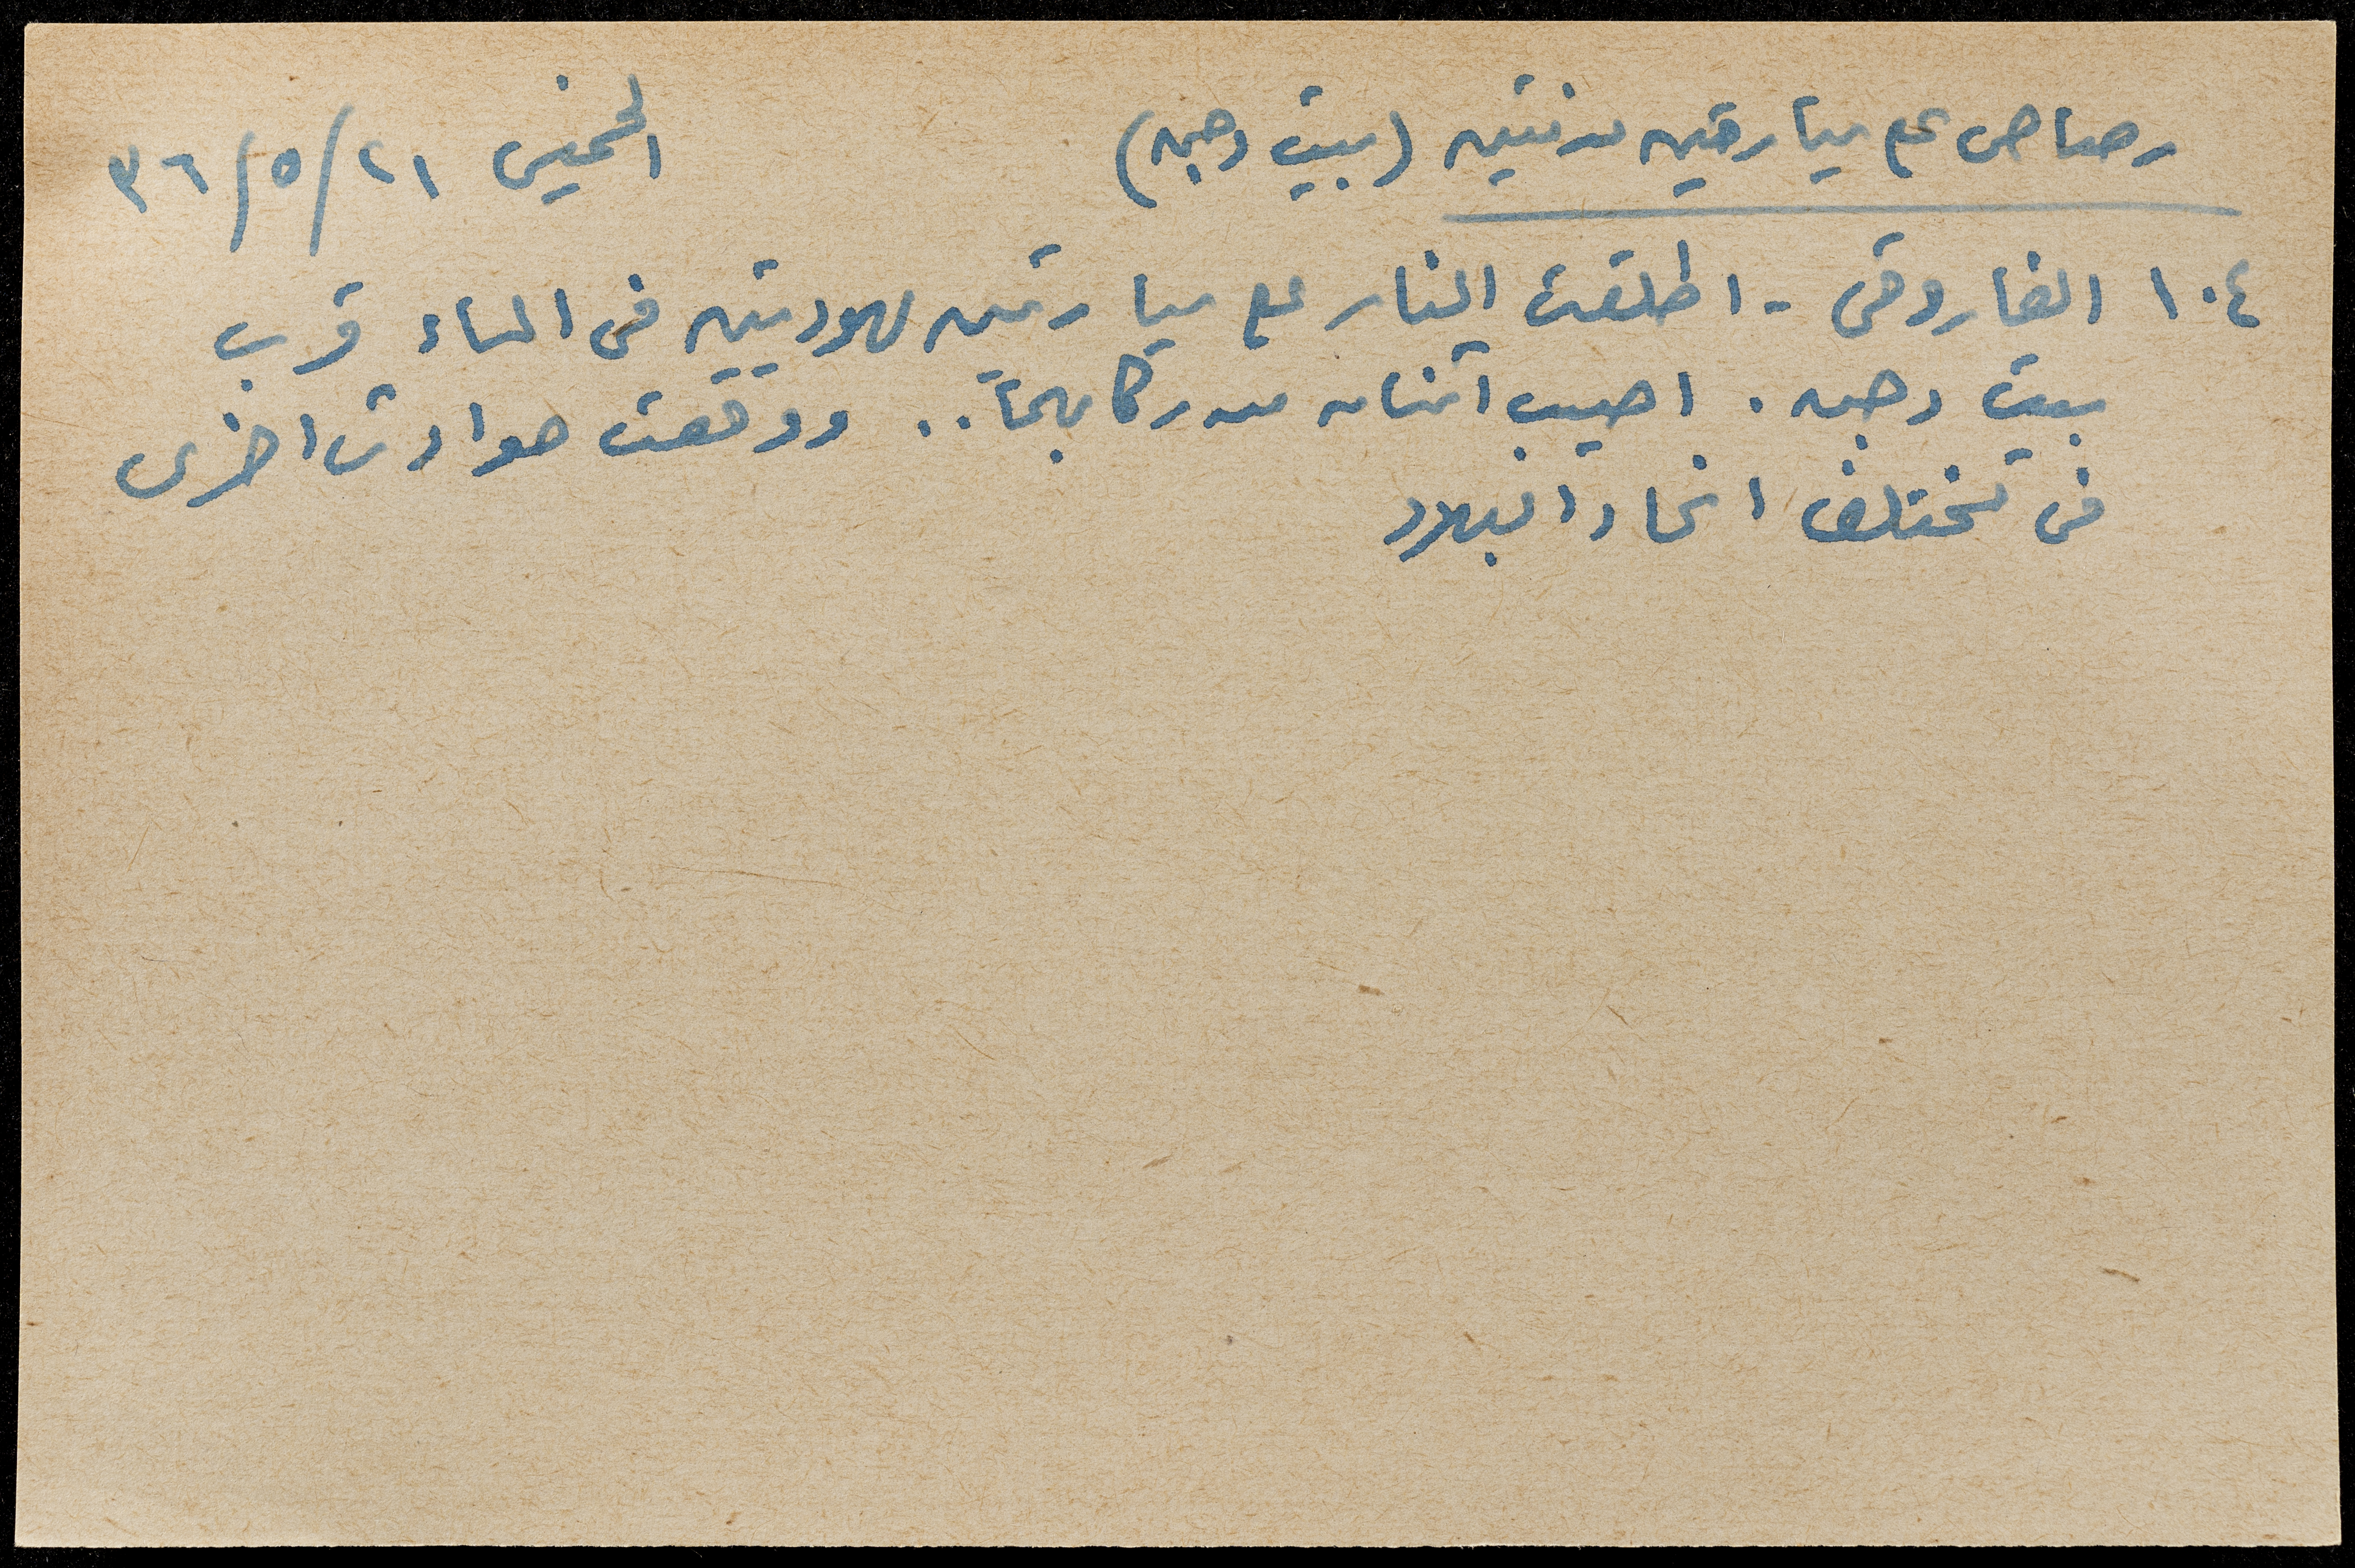 رصاص على سيارتين مدنيتين (بيت دجن) الخميس ٢١/٥/٣٦
١٠٤ الفاروقي - اطلقت النار على سيارتين يهوديتين في المساء قرب
بيت دجن . اصيب اثنان من ركابهما .. ووقعت حوادث اخرى
في مختلف انحاء البلاد